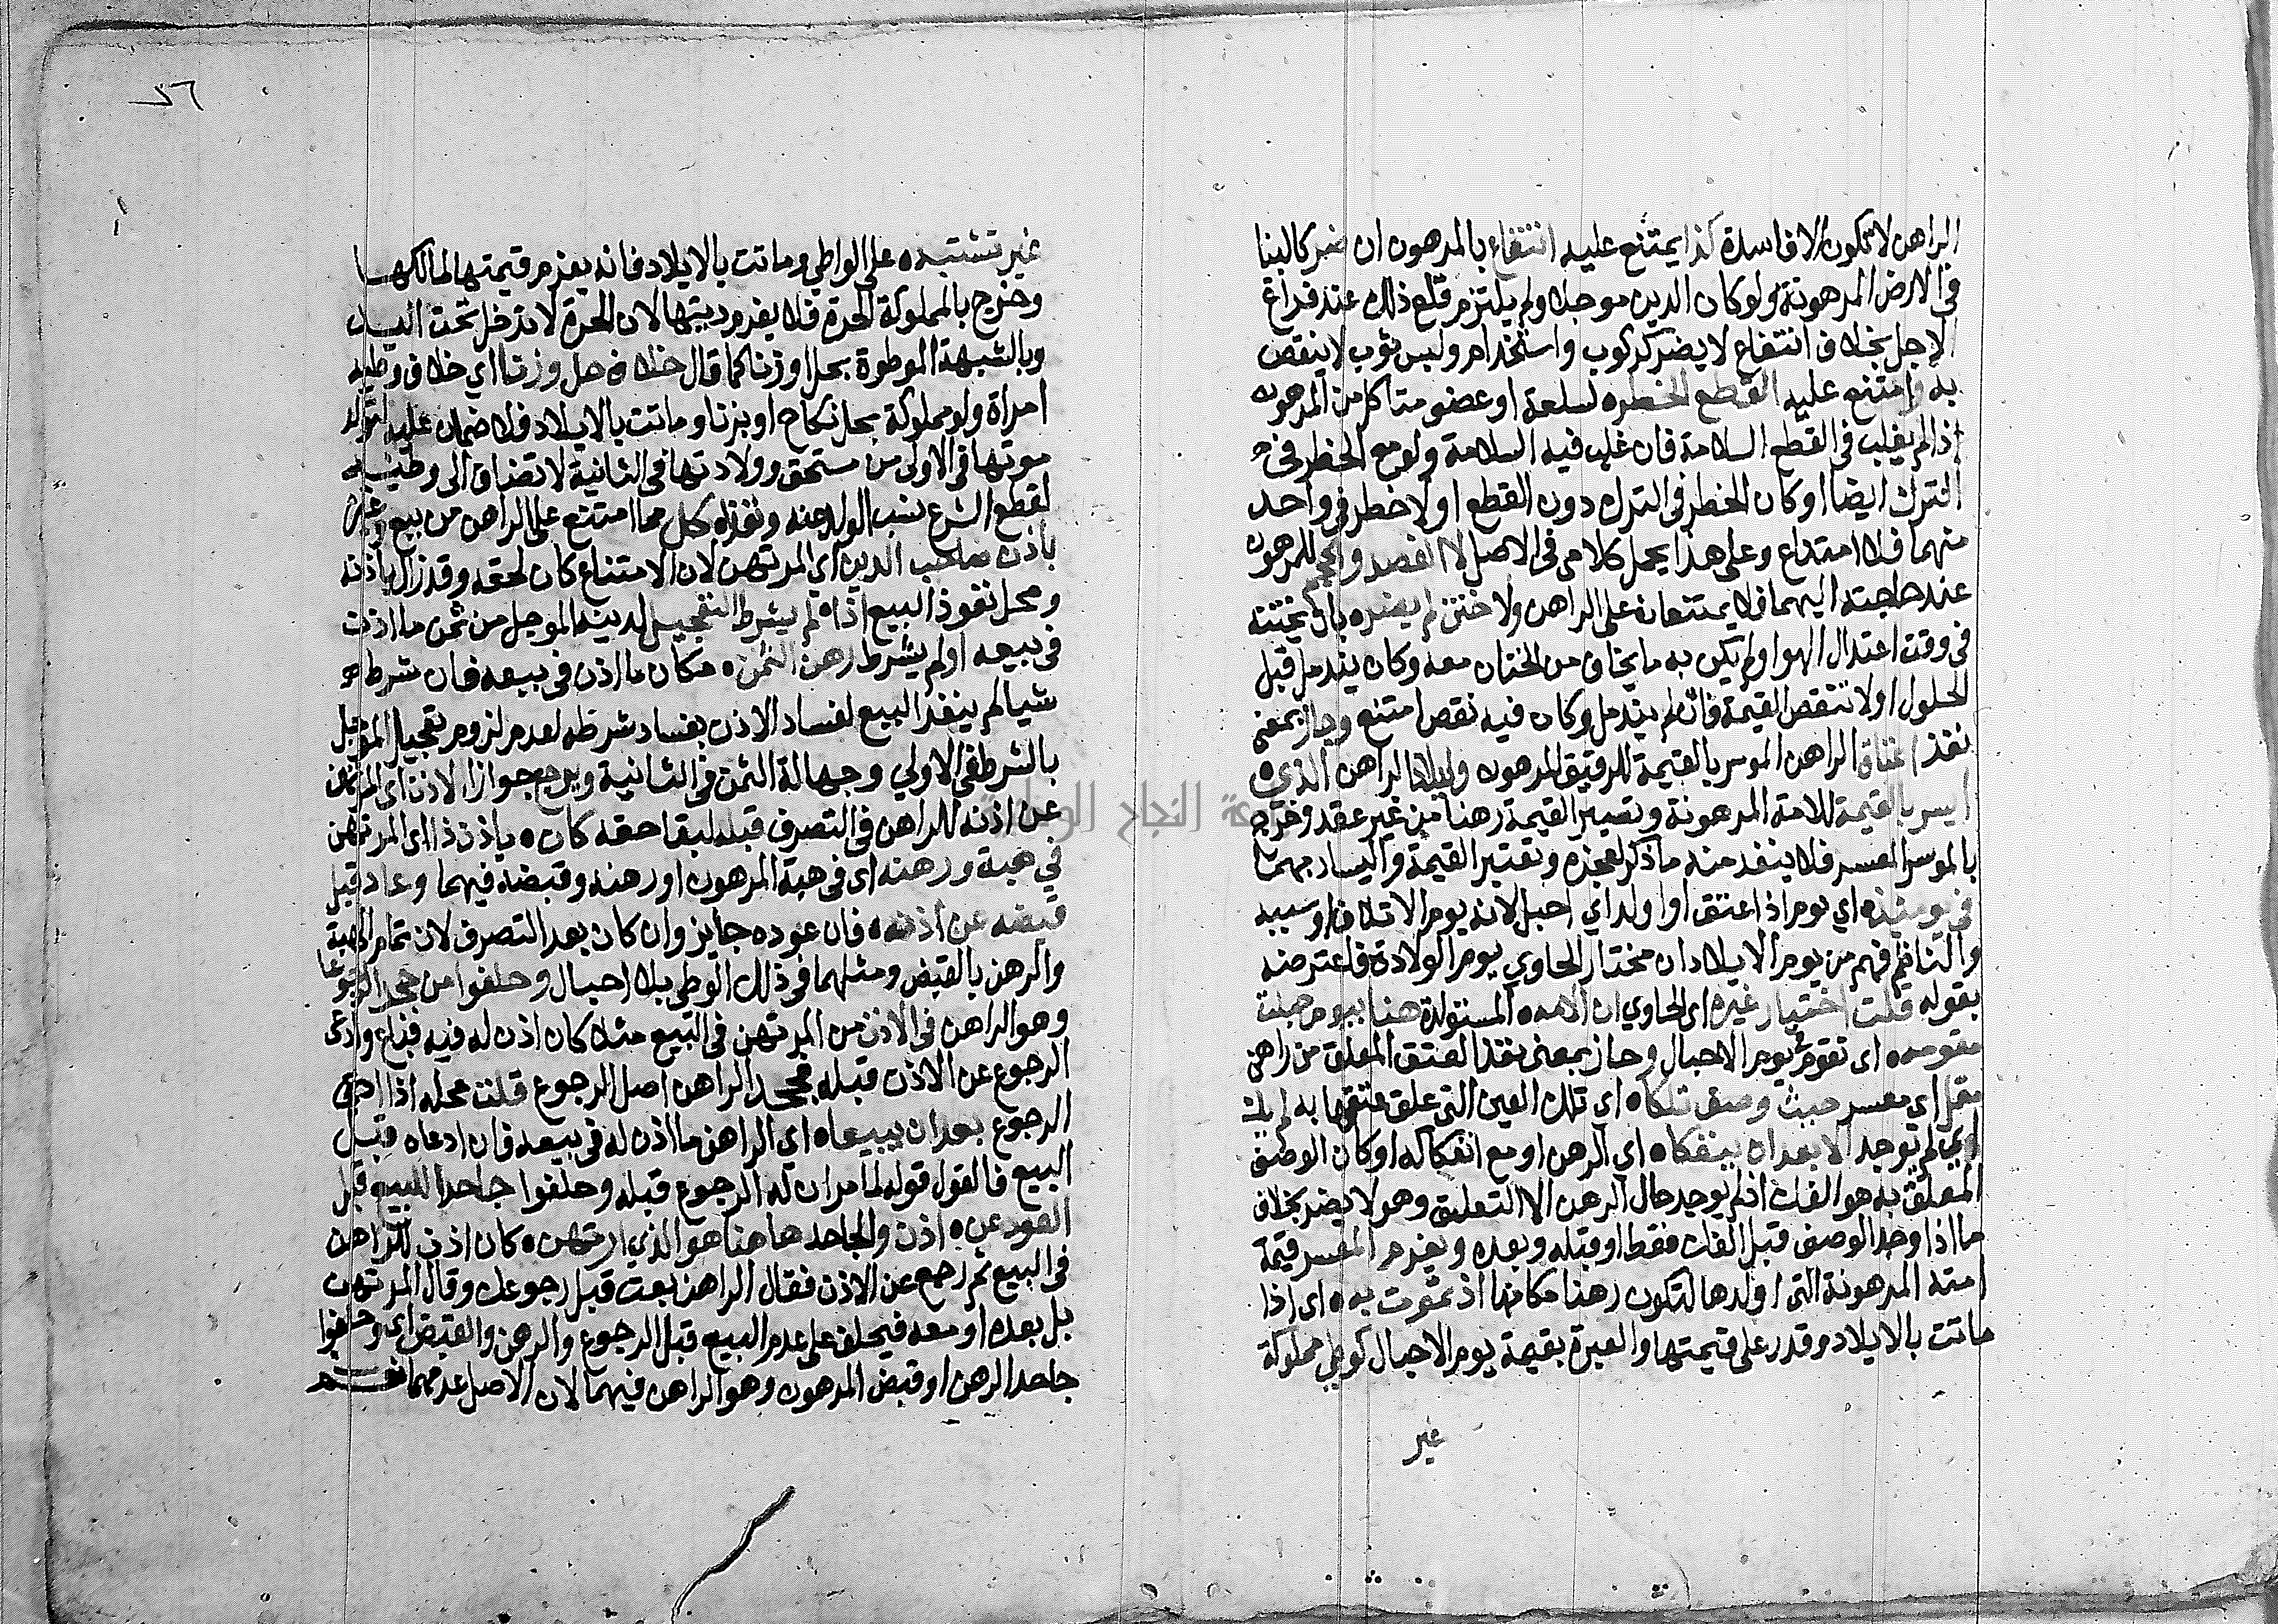 الراهن لا تكون الا فاسدة كذا يمتنع عليه انتفاع بالمرهون ان ضر كالبنا
في الارض المرهونة ولو كان الدين موجلا ولم يلتزم قلع ذلك عند فراغ
الاجل بخلاف انتفاع لا يضر كركوب واستخدام ولبس ثوب لا ينقص
به وامتنع عليه القطع الخطره لسلعة او عضو متاكل من المرهون
اذا لم يغلب في القطع السلامة فان غلب فيه السلامة ولو مع الخطر في
الترك ايضا او كان الخطر في الترك دون القطع او لا خطر في واحد
منهما فلا امتناع وعلى هذا يحمل كلامي في الاصل لا الفصد والحجم للمرهون
عند حاجته اليهما فلا يمتنعان على الراهن ولا ختن لم يضره بان يختنه
في وقت اعتدال الهوا ولم يكن به ما يخاف من الختان معه وكان يندمل قبل
الحلول او لا تنقص القيمة فان لم يندمل وكان فيه نقص امتنع وجاز بمعنى
نفذ اعتاق الراهن الموسر بالقيمة للرقيق المرهون وايلاد الراهن الذي
ايسر بالقيمة للامة المرهونة وتصير القيمة رهنا من غير عقد وخرج
بالموسر المعسر فلا ينفذ منه ما ذكر لعجزه وتعتبر القيمة واليسار بهما
في يوميذه اي يوم اذ اعتق او اولد اي احبل لانه يوم الاتلاف او سببه
والناظم فهم من يوم الايلاد ان مختار الحاوي يوم الولادة فاعترضه
بقوله قلت اختيار غيره اي الحاوي ان الامه المستولدة هنا بيوم حبلت
مقومه اي تقوم يوم الاحبال وجاز بمعنى نفذ العتق المعلق من راهن
مقل اي معسر حيث وصف تلكاه اي تلك العين التي علق عتقها به لم يك
اي لم يوجد الا بعد ان ينفكاه اي الرهن او مع انفكاكه او كان الوصف
المعلق به هو الفك اذ لم يوجد حال الرهن الا التعليق وهو لا يضر بخلاف
ما اذا وجد الوصف قبل الفك فقط او قبله وبعده ويغرم المعسر قيمة
امته المرهونة التي اولدها لتكون رهنا مكانها اذ تموت به اي اذا
ماتت بالايلاد وقدر على قيمتها والعبرة بقيمة يوم الاحبال كوطي مملوكة
غير
٢٦
غير تشتبه على الواطي وماتت بالايلاد فانه يغرم قيمتها لمالكها
وخرج بالمملوكة الحرة فلا يغرم ديتها لان الحرة لا تدخل تحت اليد
وبالشبهة الموطوة بحل او زنا كما قال خلاف حل وزنا اي خلاف وطيه
امراة ولو مملوكة بحل نكاح او بزنا وماتت بالايلاد فلا ضمان عليه لتولد
موتها في الاولى من مستحق وولادتها في الثانية لا تضاف الى وطيه
لقطع الشرع نسب الولد عنه ونفذه كل مما امتنع على الراهن من بيع وغيره
باذن صاحب الدين اي المرتهن لان الامتناع كان لحقه وقد زال باذنه
ومحل نفوذ البيع اذا لم يشرط التعجيل لدينه الموجل من ثمن ما اذن
في بيعه او لم يشرط رهن الثمن مكان ما اذن في بيعه فان شرط
شيا لم ينفذ البيع لفساد الاذن بفساد شرطه لعدم لزوم تعجيل الموجل
بالشرط في الاولي وجهالة الثمن في الثانية ويرجع جوازا الاذن اي المرتهن
عن اذنه للراهن في التصرف قبله لبقا حقه كان باذن ذا اي المرتهن
في هبة ورهنه اي في هبة المرهون او رهنه وقبضه فيهما وعاد قبل
قبضه عن اذنه فان عوده جايز وان كان بعد التصرف لان تمام الهبة
والرهن بالقبض ومثلهما في ذلك الوطي بلا احبال وحلفوا من جحد الرجوعا
وهو الراهن في الاذن من المرتهن في البيع مثلا كان اذن له فيه فباع وادعى
الرجوع عن الاذن قبله فجحد الراهن اصل الرجوع قلت محله اذا ادعى
الرجوع بعد ان يبيعاه اي الراهن ما اذن له في بيعه فان ادعاه قبل
البيع فالقول قوله لما مر ان له الرجوع قبله وحلفوا جاحد البيع قبل
العود عن اذن والجاحد هاهنا هو الذي ارتهن كان اذن للراهن
في البيع ثم رجع عن الاذن فقال الراهن بعت قبل رجوعك وقال المرتهن
بل بعده او معه فيحلف على عدم البيع قبل الرجوع والرهن والقبض اي وحلفوا
جاحد الرهن او قبض المرهون وهو الراهن فيهما لان الاصل عدمهما